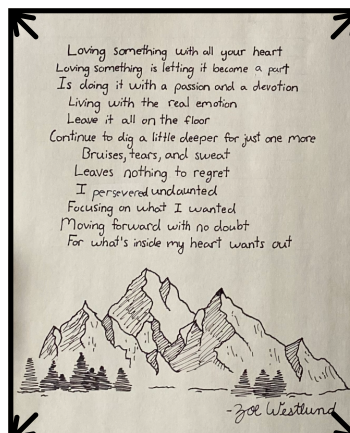 Loving something with all your heart
Loving something is letting it become a part
Is doing it with a passion and a devotion
Living with the real emotion
Leave it all on the floor
Continue to dig a little deeper for just one more
Bruises, tears, and sweat
Leaves nothing to regret
I persevered undaunted
Focusing on what I wanted
Moving forward with no doubt
For what's inside my heart wants out
-Zoe Westlund